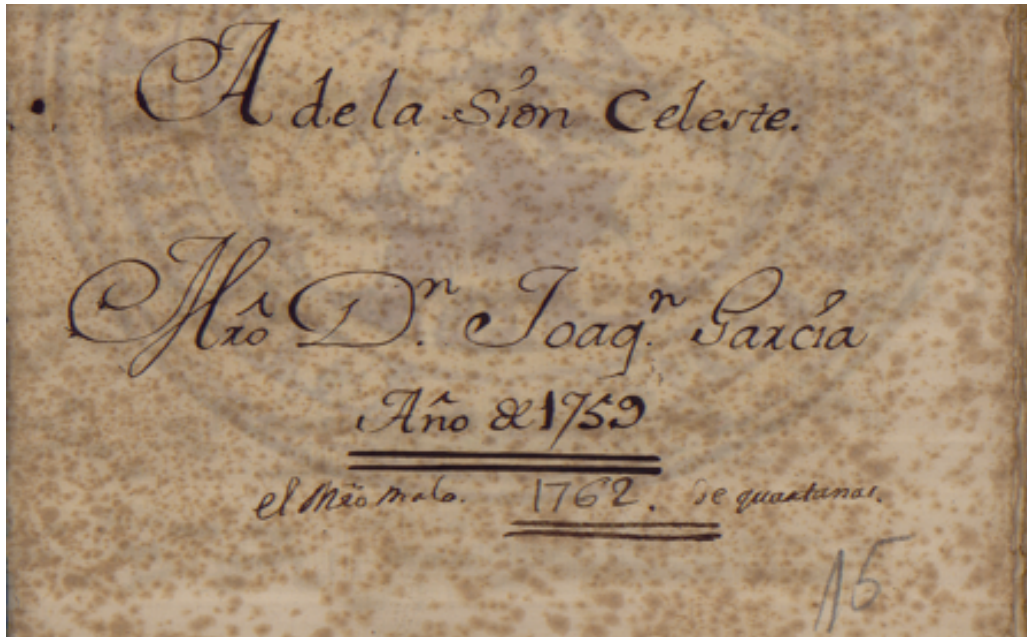 A de la Sión Celeste.
Mrô Dn. Joaqn. García
Año de 1759
el Mrô malo. 1762. de quartanas.
15